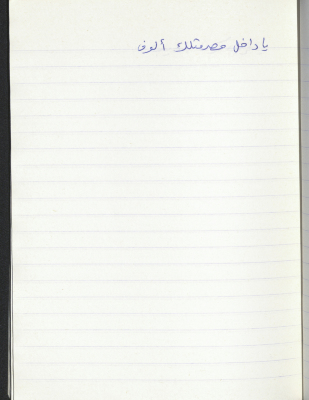 يا داخل مصر مثلك ألوف